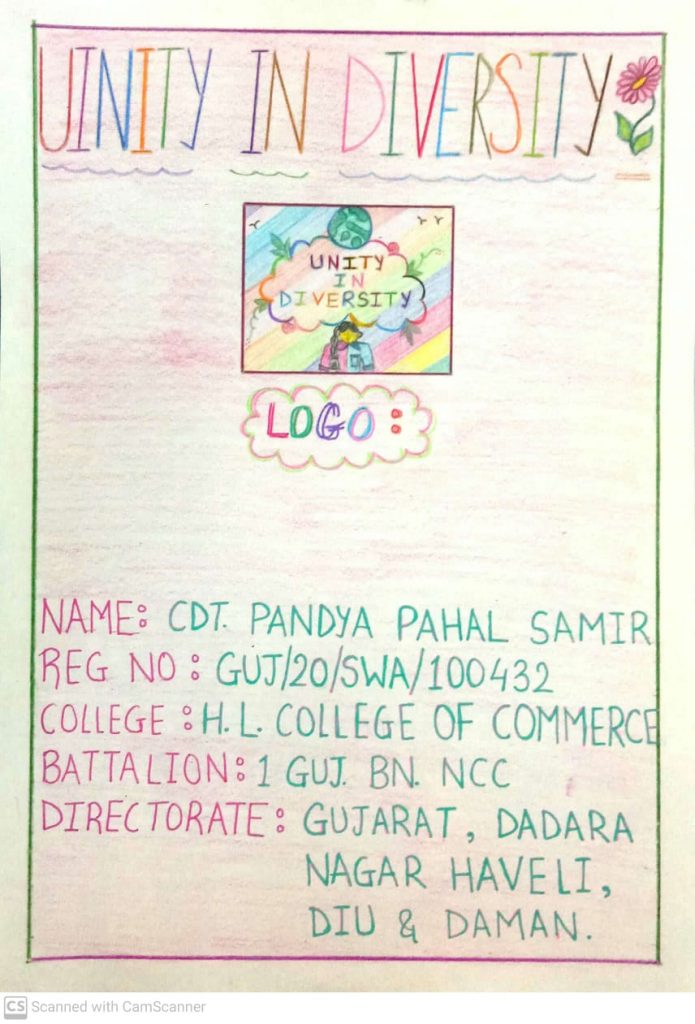 UINITY IN DIVERSITY
UNITY
IN
DIVERSITY
LOGO:
NAME: CDT. PANDYA PAHAL SAMIR
REG NO: GUJ/20/SWA/100432
COLLEGE: H.L. COLLEGE OF COMMERCE
BATTALION: 1 GUJ. BN. NCC
DIRECTORATE: GUJARAT, DADARA
NAGAR HAVELI,
DIU & DAMAN.
CS Scanned with CamScanner